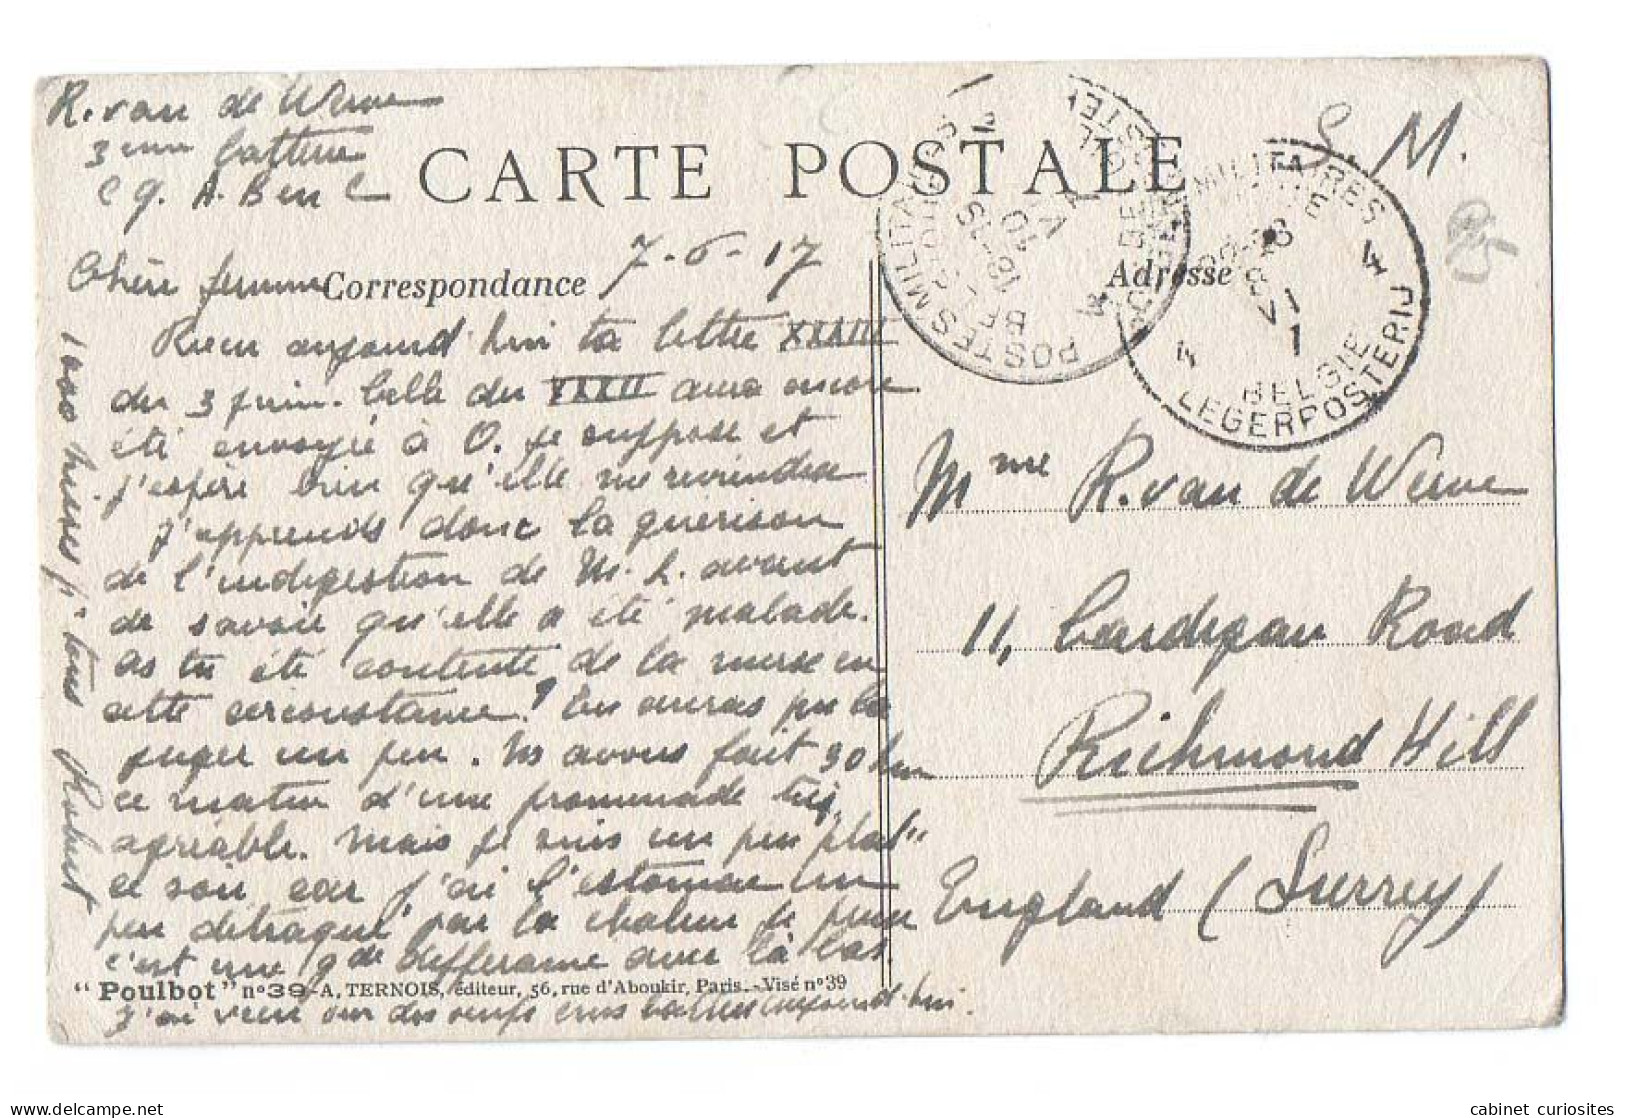 R. van de Werve
3eme batterie
C 9. A. B en C
CARTE POSTALE
S. M.
7-6-17
Chère femme
Correspondance
Adresse
Reçu aujourd'hui ta lettre XXXIII
du 3 juin. Celle du XXXII aura encore
été envoyée à O. je suppose et
j'espère bien qu'elle me reviendra
J'apprends donc la guérison
de l'indigestion de M. L. avant
de savoir qu'elle a été malade.
as tu été contente de la nurse en
cette circonstance? tu auras pu la
juger un peu. Ns avons fait 30 km
ce matin d'une promenade très
agréable. Mais je suis un peu "plat"
ce soir car j'ai l'estomac un
peu détraqué par la chaleur
c'est une gde différence avec là bas.
"Poulbot" n°39-A. TERNOIS, éditeur, 56, rue d'Aboukir, Paris.-Visé n°39
J'ai
1000 baisers pr tous Robert
POSTES MILITAIRES
BELGIQUE
18-19
10
V
4
POSTES MILITAIRES
BELGIQUE
VI
BELGIE
4 LEGERPOSTERIJ 4
Mme R. van de Werve
11, Cardigan Road
Richmond Hill
England (Surrey)
cabinet_curiosites